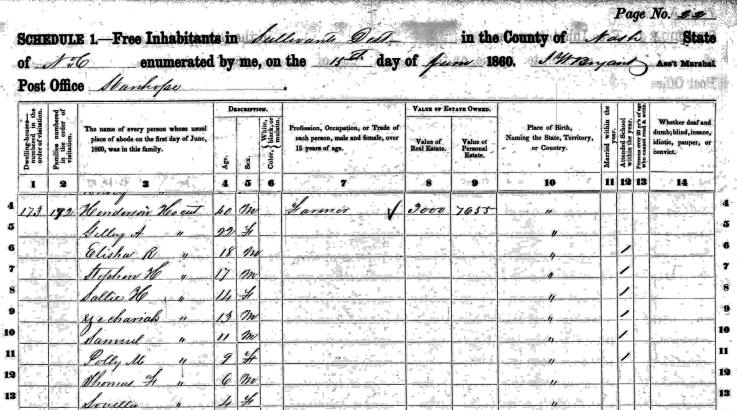 Page No. 22
SCHEDULE 1.—Free Inhabitants in Sullivants Dist in the County of Nash State
of N.C enumerated by me, on the 15th day of June 1860. Bryant Ass't Marshal
Post Office Stanhope.
DESCRIPTION. VALUE OF ESTATE OWNED.
Dwelling-houses—numbered in the order of visitation.
Families numbered in the order of visitation.
The name of every person whose usual place of abode on the first day of June, 1860, was in this family.
Age.
Sex.
Color, White, black, or mulatto.
Profession, Occupation, or Trade of each person, male and female, over 15 years of age.
Value of Real Estate.
Value of Personal Estate.
Place of Birth, Naming the State, Territory, or Country.
Married within the year.
Attended School within the year.
Persons over 20 y'rs of age who cannot read & write.
Whether deaf and dumb, blind, insane, idiotic, pauper, or convict.
1 2 3 4 5 6 7 8 9 10 11 12 13 14
4 173 192 Henderson Hocut 40 M Farmer ✓ 3000 7655 " 4
5 Gilley A " 22 F " 5
6 Elisha R " 18 M " / 6
7 Stephen H " 17 M " / 7
8 Sallie H " 14 F " / 8
9 Zechariah " 13 M " / 9
10 Samuel " 11 M " / 10
11 Polly M " 9 F " / 11
12 Thomas F " 6 M " 12
13 Sovella " 4 F " 13